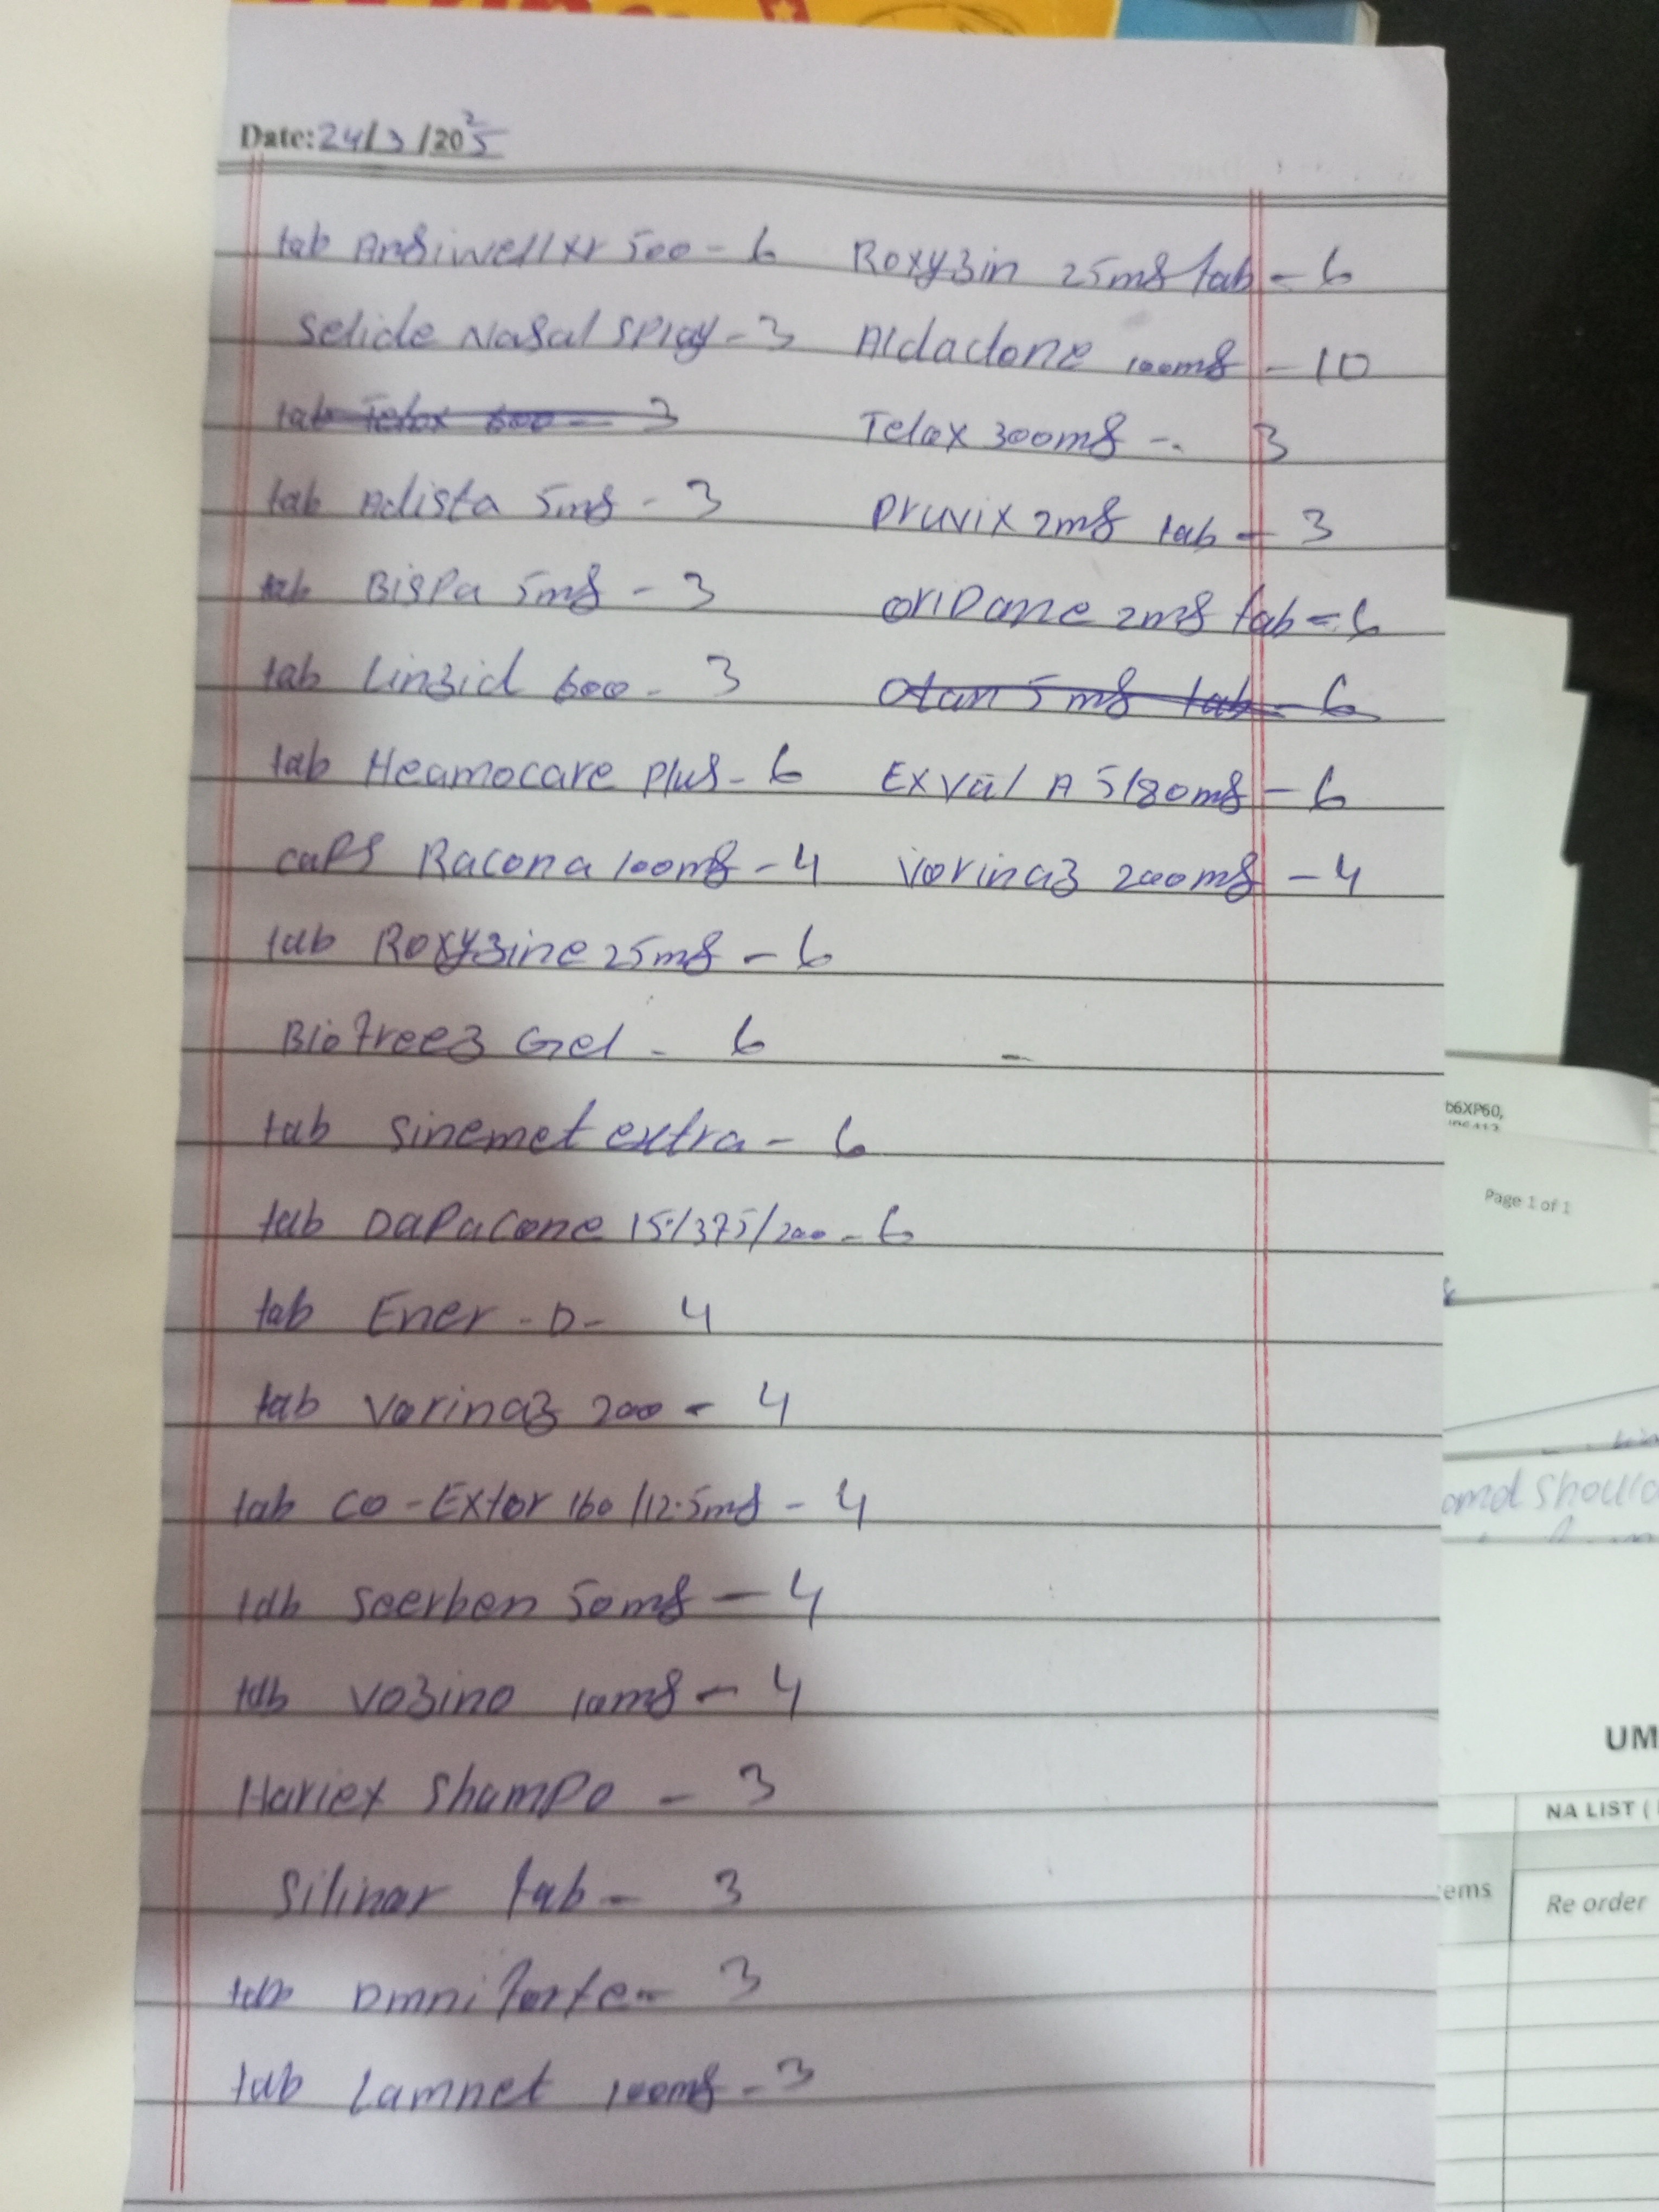 Date: 24/3/2025
tab Ansiwell xr 500 - 6
Selide Nasal Spray - 3
tab Telax 600 - 3
tab Adista 5mg - 3
tab Bispa 5mg - 3
tab Linzid 600 - 3
tab Heamocare Plus - 6
caps Racona 100mg - 4
tab Roxyzine 25mg - 6
Biofreez Gel - 6
tab Sinemet extra - 6
tab DaPaCone 150/375/200 - 6
tab Ener - D - 4
tab Vorinaz 200 - 4
tab CO-Extor 160/12.5mg - 4
tab Seerben 50mg - 4
tab Vozino 10mg - 4
Hariex Shampo - 3
Silinar tab - 3
tab Omni forte - 3
tab Lamnet 100mg - 3
Roxyzin 25mg tab - 6
Aldactone 100mg - 10
Telax 300mg - 3
Pruvix 2mg tab - 3
oriDane 2mg tab = 6
Otan 5mg tab - 6
Exval A 5/80mg - 6
Vorinaz 200mg - 4
b6XP60,
Page 1 of 1
and should
UM
NA LIST (
ems
Re order